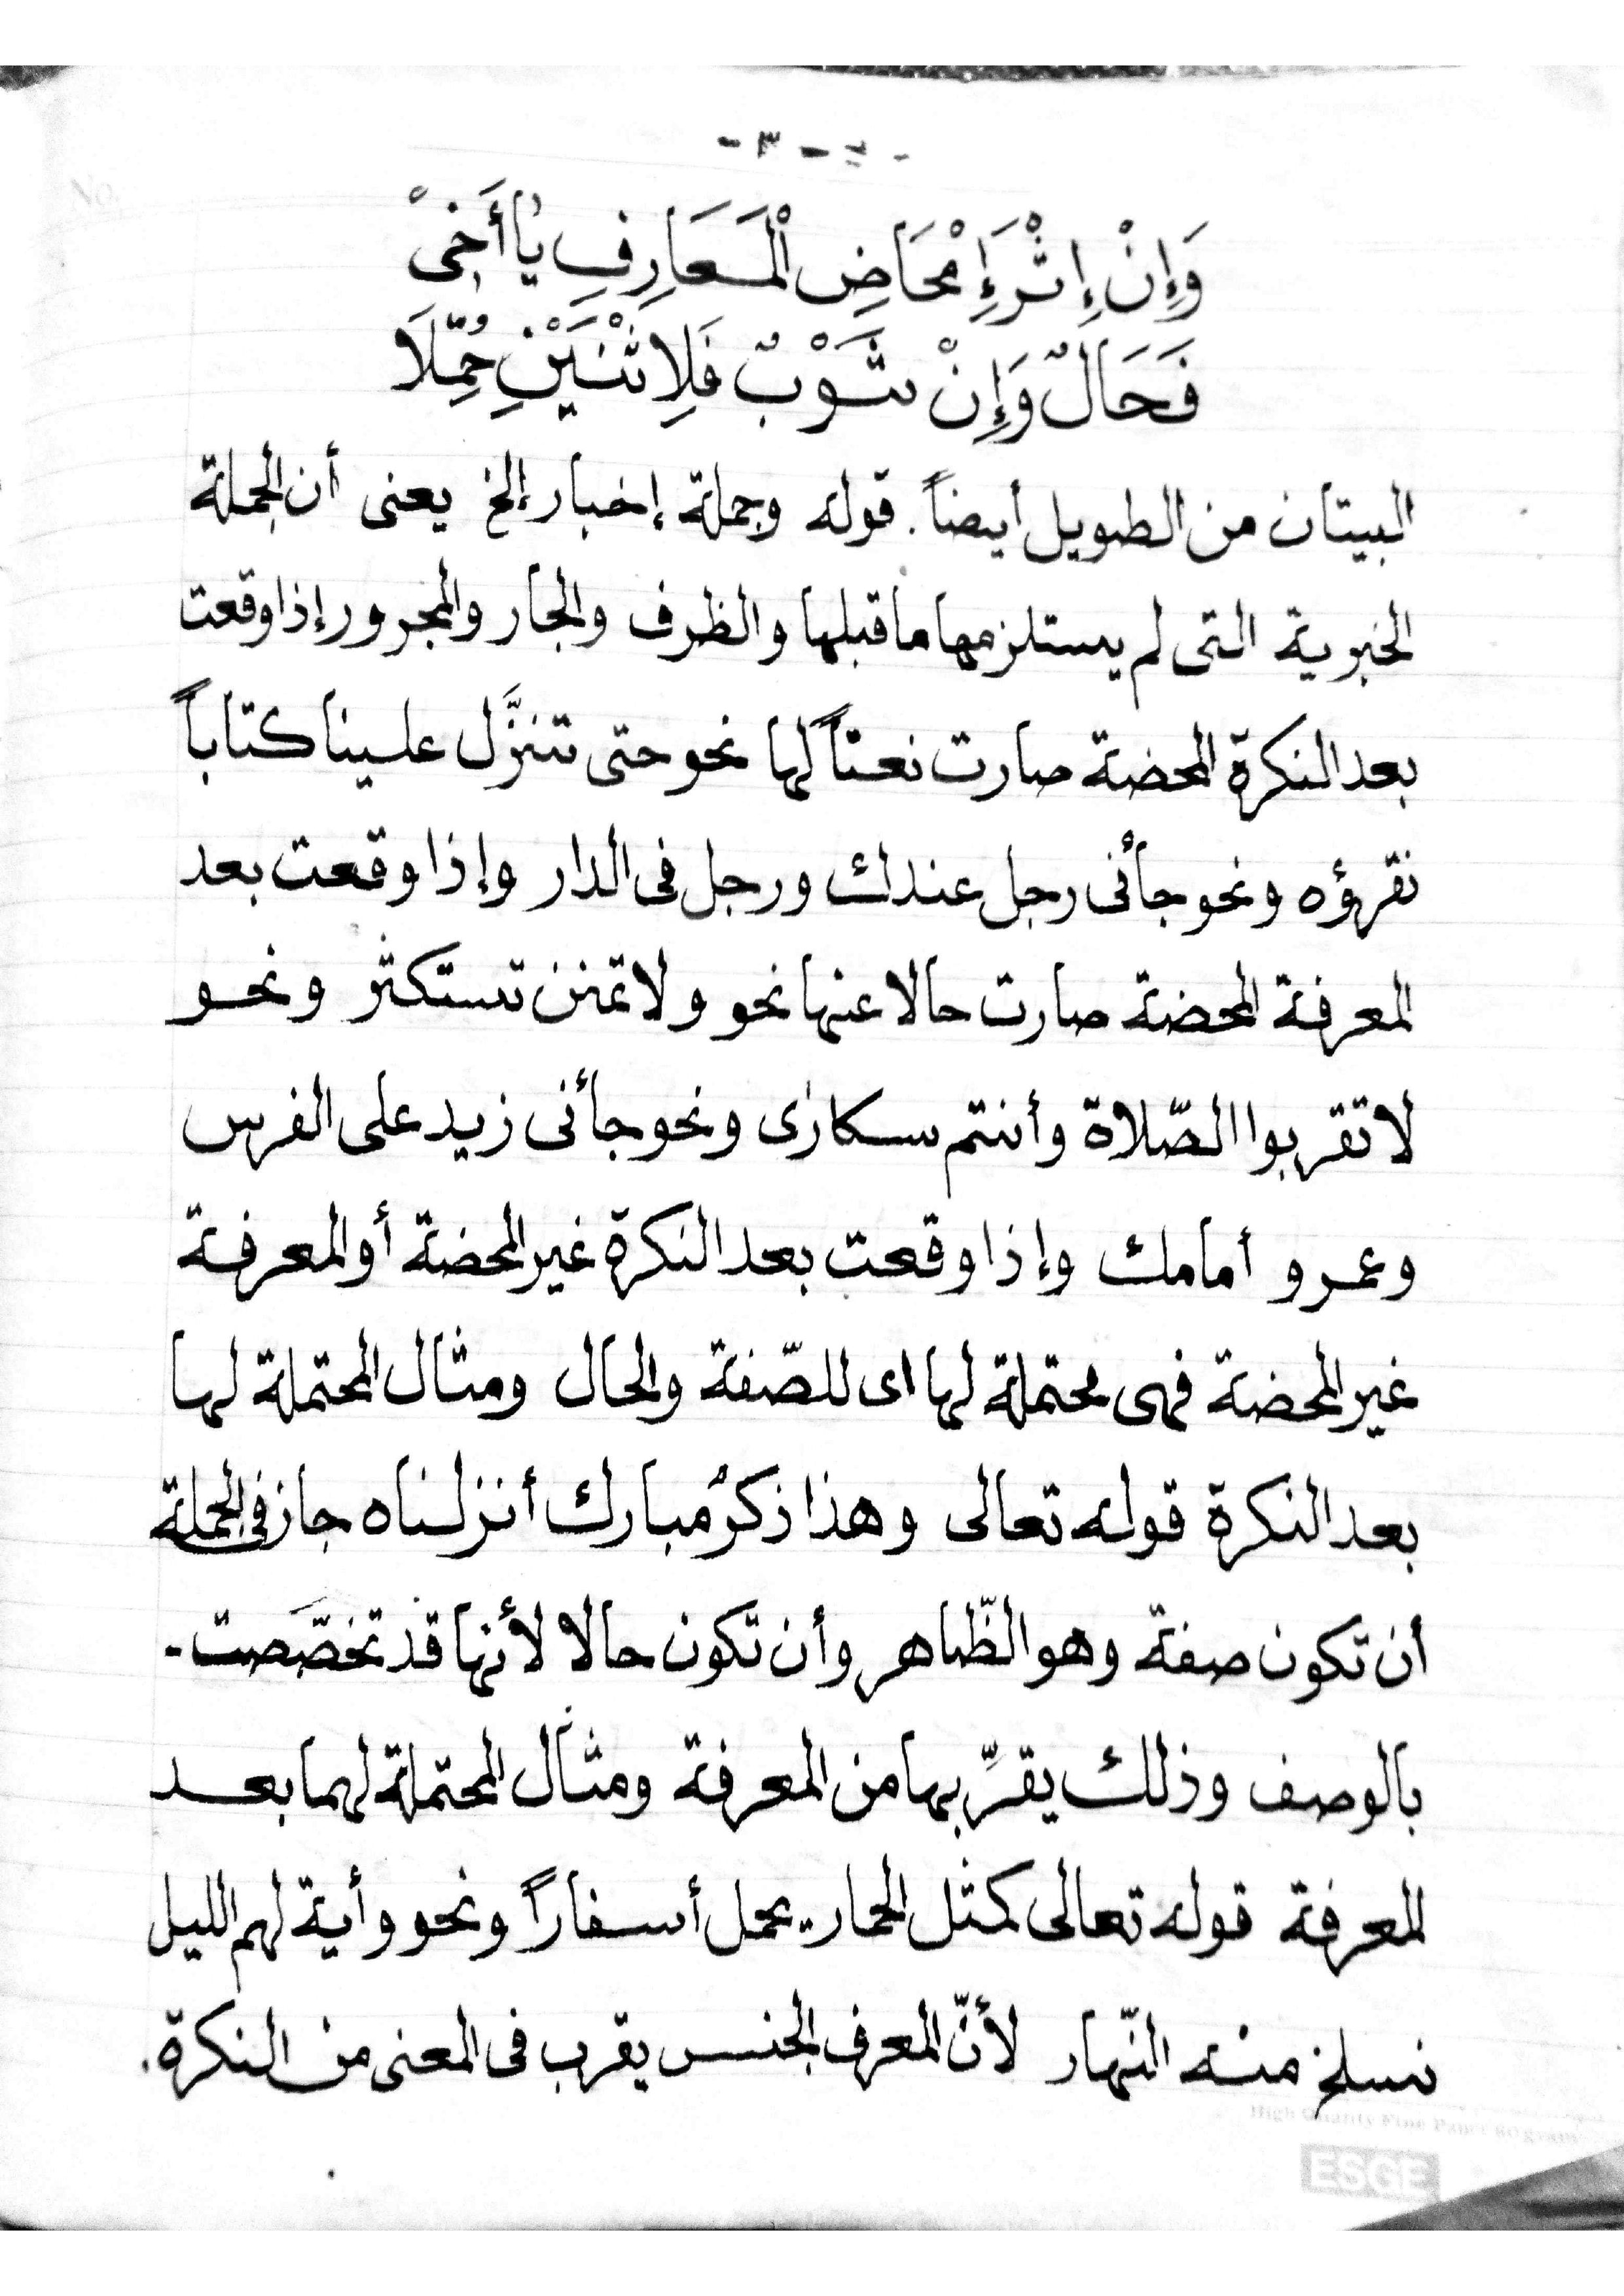 - ٣ -
وَإِنْ إِثْرَ إِمْحَاضِ الْمَعَارِفِ يَا أَخِىْ
فَحَالٌ وَإِنْ شَوْبٌ فَلِاثْنَيْنِ حُمِّلَا
البيتان من الطويل أيضاً. قوله وجملة إخبار إلخ يعنى أن الجملة
الخبرية التى لم يستلزمها ما قبلها والظرف والجار والمجرور إذا وقعت
بعد النكرة المحضة صارت نعتاً لها نحو حتى تنزَّل علينا كتاباً
نقرؤه ونحو جأنى رجل عندك ورجل فى الدار وإذا وقعت بعد
المعرفة المحضة صارت حالا عنها نحو ولا تمنن تستكثر ونحو
لا تقربوا الصّلاة وأنتم سكارى ونحو جأنى زيد على الفرس
وعمرو أمامك وإذا وقعت بعد النكرة غير المحضة أو المعرفة
غير المحضة فهى محتملة لها اى للصّفة والحال ومثال المحتملة لها
بعد النكرة قوله تعالى وهذا ذكرٌ مبارك أنزلناه جاز فى الجملة
أن تكون صفة وهو الظّاهر وأن تكون حالا لأنها قد تخصّصت -
بالوصف وذلك يقرّبها من المعرفة ومثال المحتملة لهما بعد
المعرفة قوله تعالى كمثل الحمار يحمل أسفاراً ونحو وأية لهم الليل
نسلخ منه النّهار لأنّ المعرف الجنس يقرب فى المعنى من النكرة.
High Quality Fine Paper 80 gram
ESGE